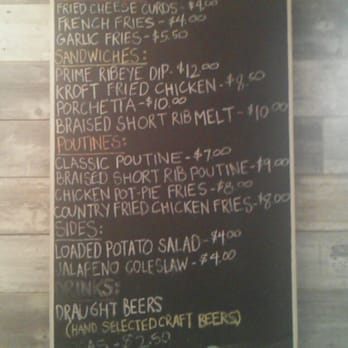 FRIED CHEESE CURDS-$4.00
FRENCH FRIES-$4.00
GARLIC FRIES-$5.50
SANDWICHES:
PRIME RIBEYE DIP-$12.00
KROFT FRIED CHICKEN-$8.50
PORCHETTA-$10.00
BRAISED SHORT RIB MELT-$10.00
POUTINES:
CLASSIC POUTINE-$7.00
BRAISED SHORT RIB POUTINE-$9.00
CHICKEN POT-PIE FRIES-$8.00
COUNTRY FRIED CHICKEN FRIES-$8.00
SIDES:
LOADED POTATO SALAD-$4.00
JALAPENO COLESLAW-$4.00
DRINKS:
DRAUGHT BEERS
(HAND SELECTED CRAFT BEERS)
-$2.50